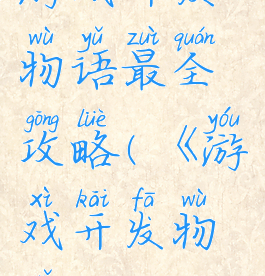 wù yǔ zuì quán
物语最全
gōng lüè yóu
攻略(《游
xì kāi fā wù
戏开发物